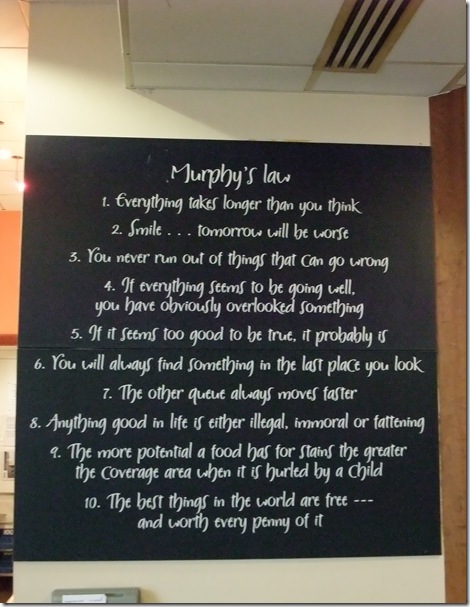 Murphy's law
1. Everything takes longer than you think
2. Smile . . . tomorrow will be worse
3. You never run out of things that can go wrong
4. If everything seems to be going well,
you have obviously overlooked something
5. If it seems too good to be true, it probably is
6. You will always find something in the last place you look
7. The other queue always moves faster
8. Anything good in life is either illegal, immoral or fattening
9. The more potential a food has for stains the greater
the coverage area when it is hurled by a child
10. The best things in the world are free ---
and worth every penny of it